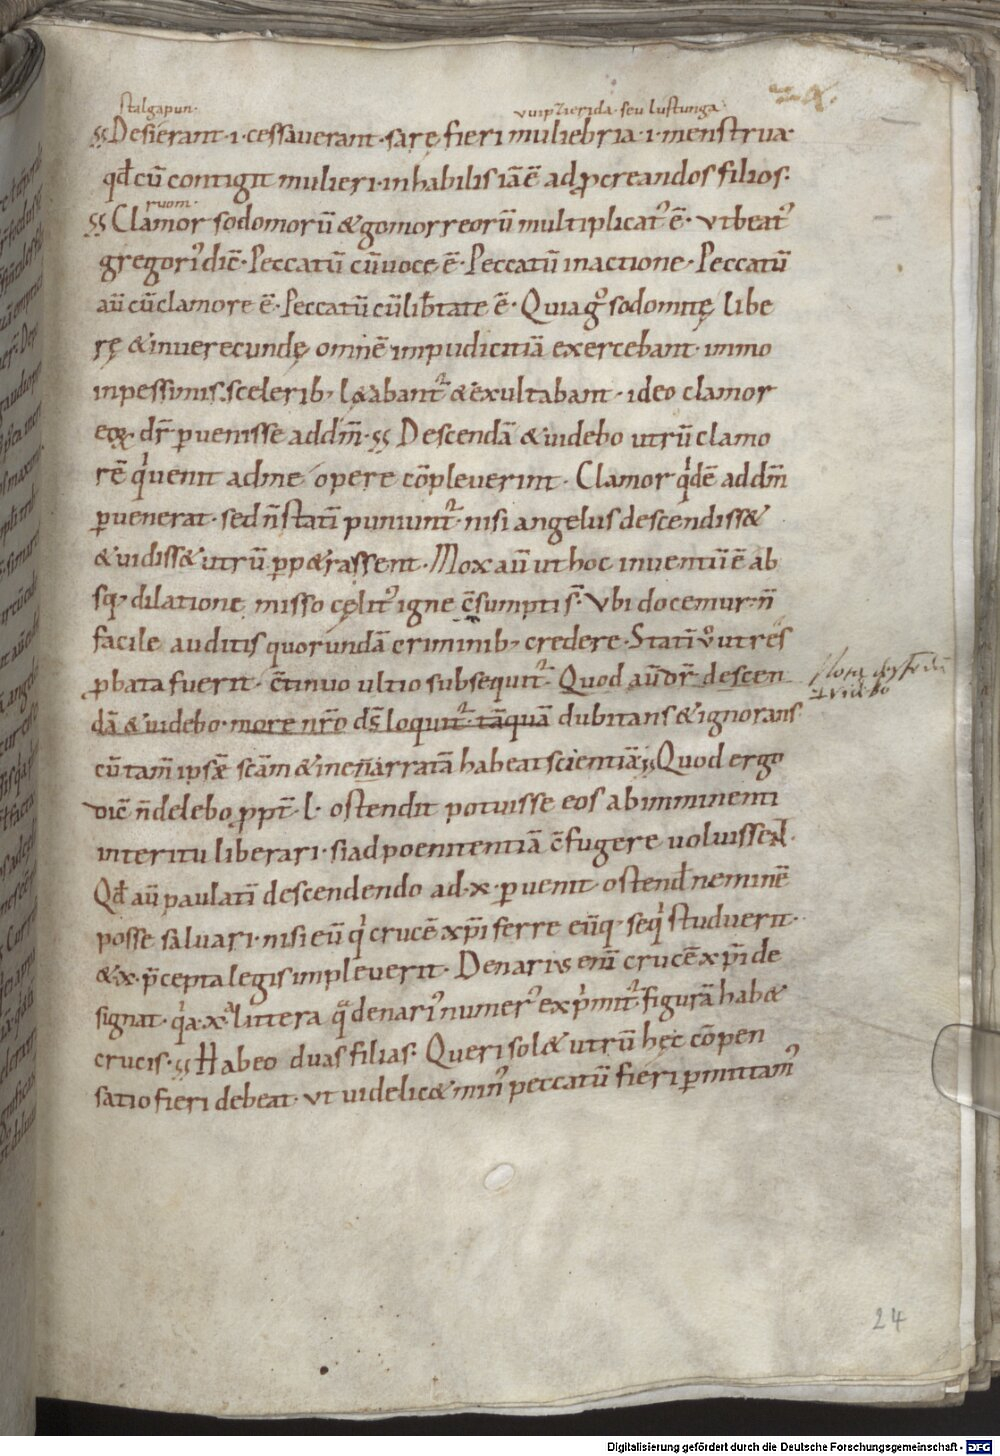 stalgapun· vuipzierida· seu lustunga·
Desierant·i·cessaverant·sarę fieri muliebria·i·menstrua·
qđ cū contigit mulieri·inhabilis iā ē ad ꝓcreandos filios·
ruom·
Clamor sodomorū &gomorreorū multiplicat᾽ ē· Vt beat᾽
gregori᾽ dic̄· Peccatū cū voce ē· Peccatū in actione· Peccatū
aū cū clamore ē· Peccatū cū lib̄tate ē· Quia gͦ sodomitę libe
rę & inverecundę omnē impudicitiā exercebant· immo
in pessimis sceleribꝫ l&abant᾽ & exultabant· ideo clamor
eoꝝ dr̄ ꝑvenisse ad dm̄· Descendā & videbo utrū clamo
rē q̇ venit ad me opere cōpleverint· Clamor q̇dē ad dm̄
ꝑvenerat· sed n̄ statī puniunt᾽· nisi angelus descendiss&
& vidiss& utrū ꝑp&rassent· Mox aū ut hoc inventū ē ab
sqꝫ dilatione misso cęlit᾽ igne c̄sumpti s̄· Vbi docemur n̄
facile auditis quorundā criminibꝫ credere· Statī vͦ ut res
ꝓbata fuerit· c̄tinuo ultio subsequit᾽· Quod aū dr̄ descen
dā & videbo· more nr̄o ds̄ loquit᾽· tāquā dubitans & ignorans
cū tam̄ ipsæ scām & inenarratā habeat scientiā· Quod ergo
dic̄ n̄ delebo ꝓpt̄·l· ostendit potuisse eos ab imminenti
interitu liberari· si ad poenitentiā c̄fugere voluissent·
Qđ aū paulatī descendendo ad·x·ꝑvenit· ostend̄ neminē
posse salvari· nisi eū q̇ crucē xp̄i ferre eūqꝫ seq̇ studverit·
&·x·p̄cepta legis impleverit· Denarius enī crucē xp̄i de
signat· q̇a·x·littera q̄ denari᾽ numer᾽ exp̍mit᾽ figurā hab&
crucis· Habeo duas filias· Queri sol& utrū hęc cōpen
satio fieri debeat· ut videlic& min᾽ peccatū fieri ꝑmittam᾽
24
Digitalisierung gefördert durch die Deutsche Forschungsgemeinschaft - DFG